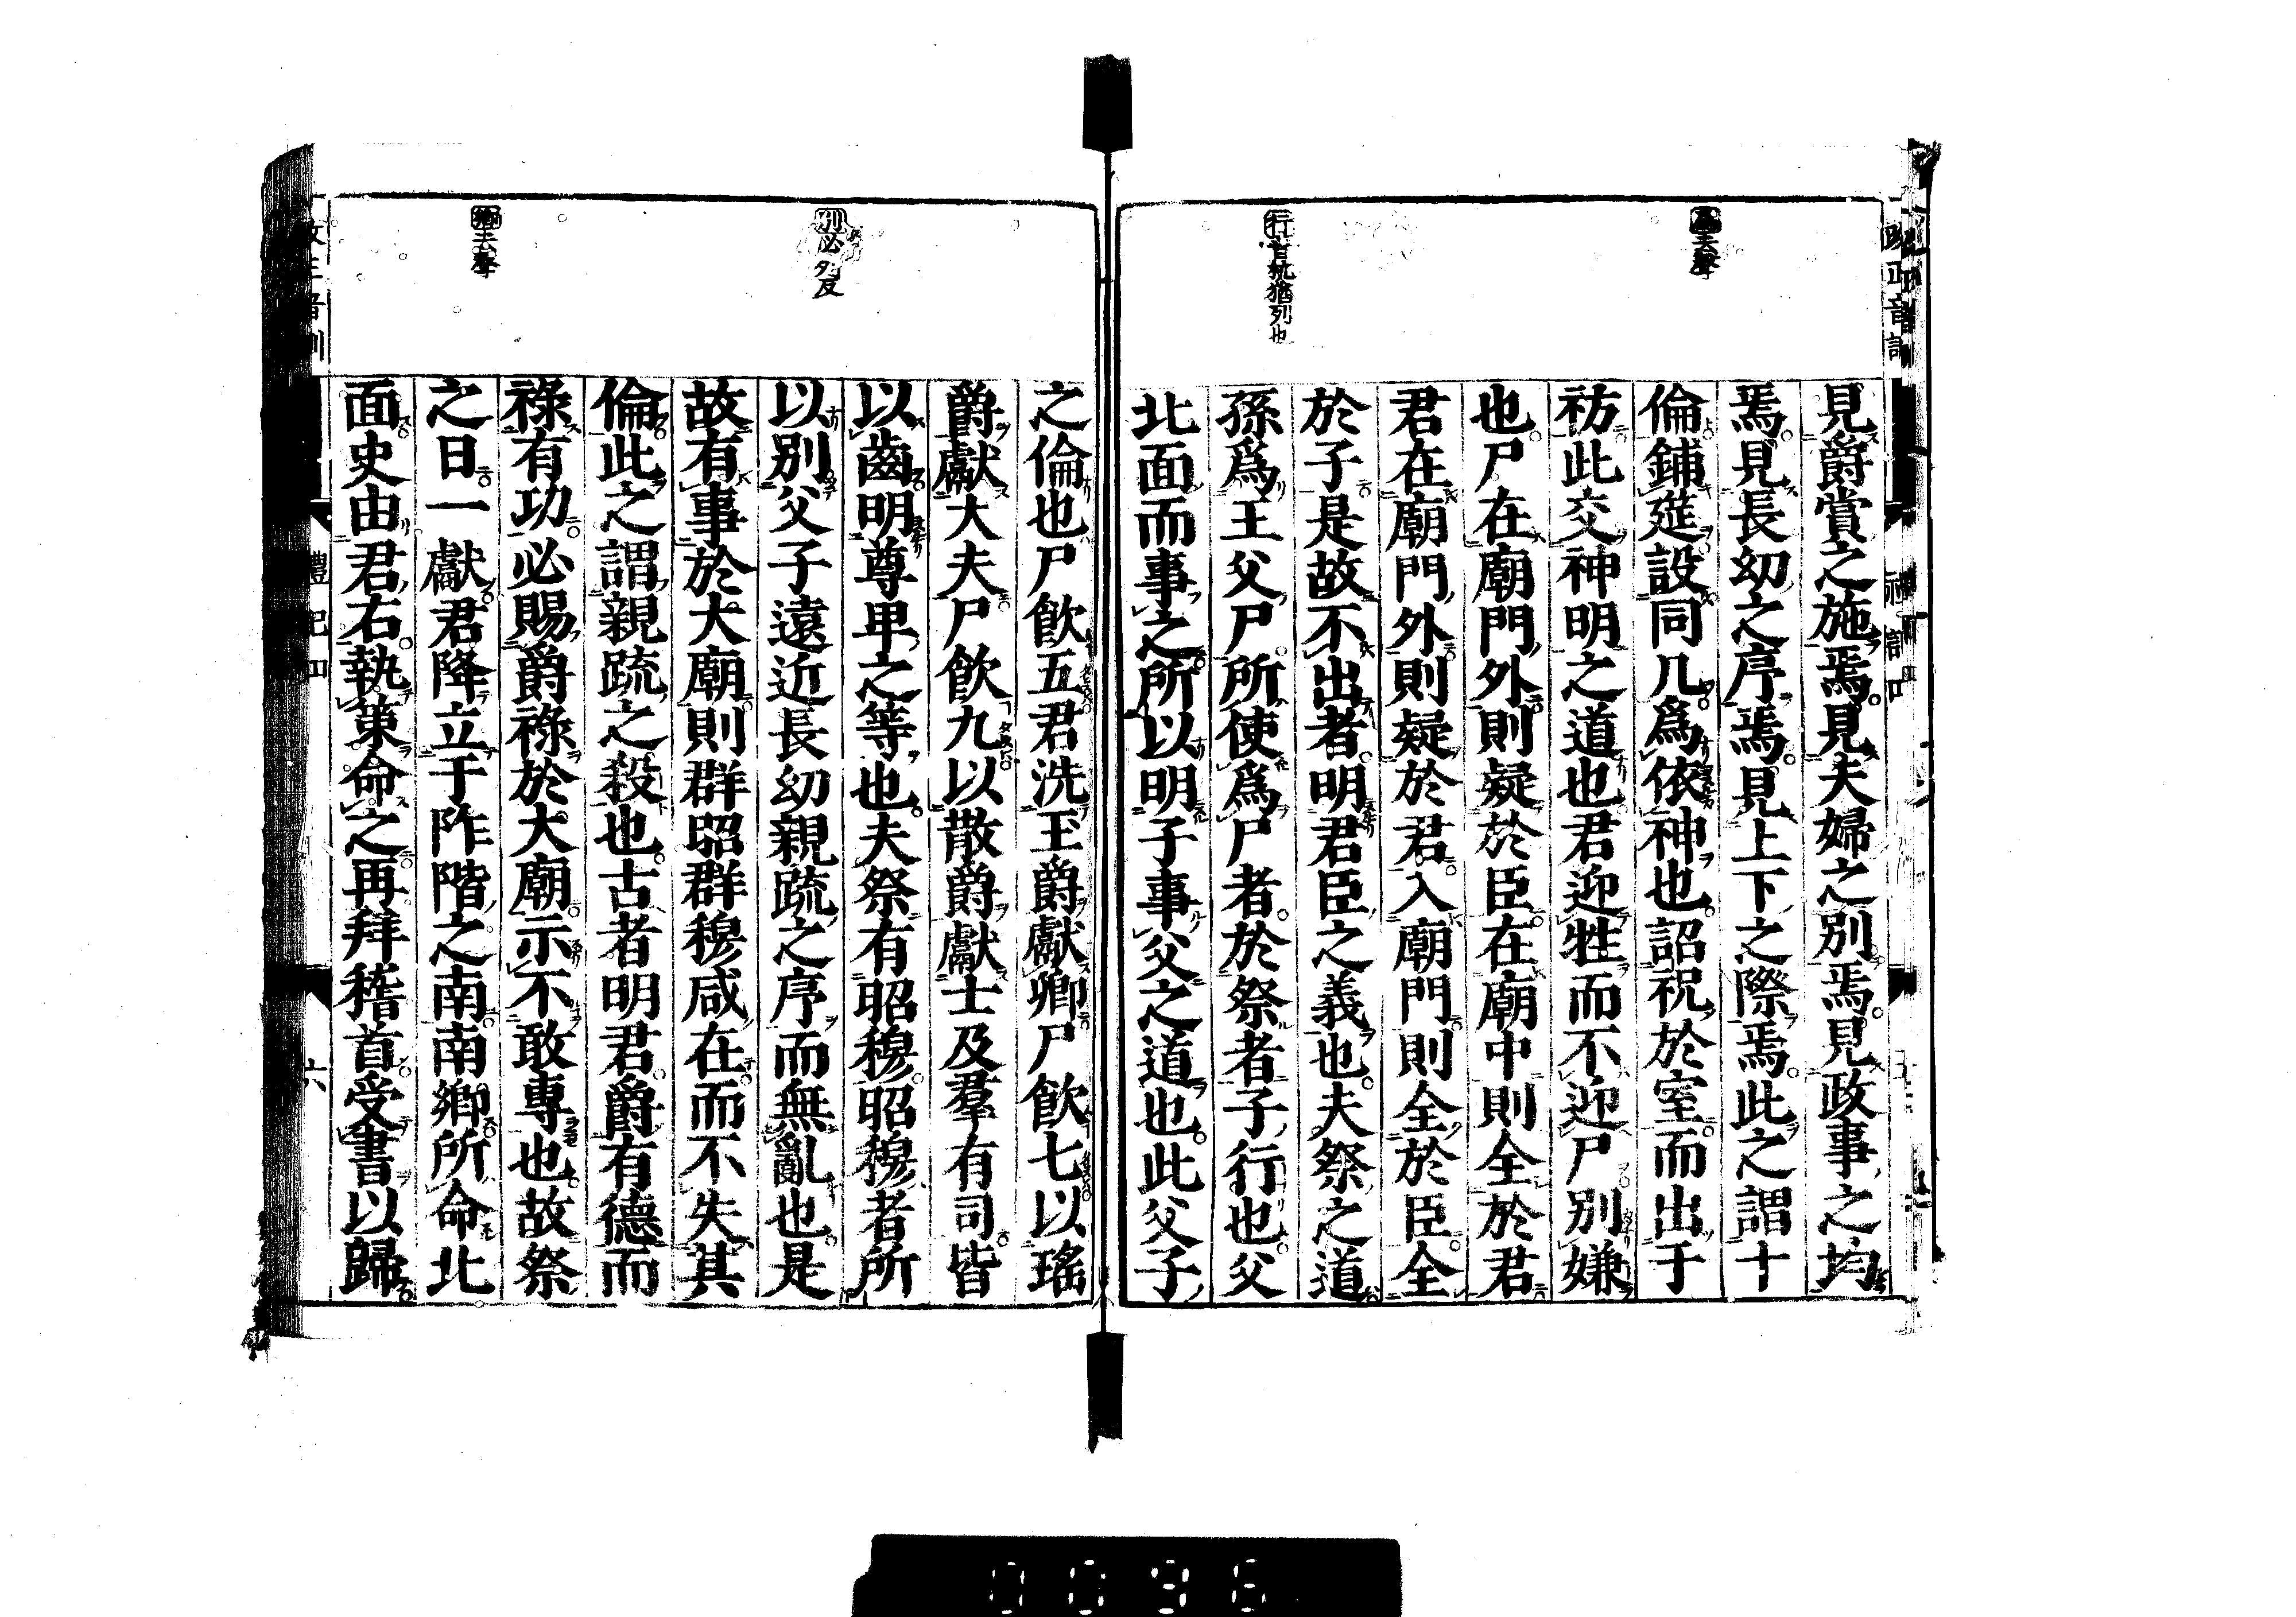 去聲
行音杭猶列也
見爵賞之施焉。見夫婦之別焉。見政事之均
焉。見長幼之序焉。見上下之際焉。此之謂十
倫鋪筵設同几。爲依神也。詔祝於室而出于
祊此交神明之道也君迎牲而不迎尸別嫌
也。尸在廟門外則疑於臣。在廟中則全於君
君在廟門外則疑於君。入廟門則全於臣。全
於子是故不出者。明君臣之義也。夫祭之道
孫爲王父尸。所使爲尸者。於祭者子行也。父
北面而事之。所以明子事父之道也。此父子
別必列反
鄉去聲
之倫也尸飮五君洗玉爵獻卿尸飮七以瑤
爵獻大夫尸飮九以散爵獻士及羣有司。皆
以齒明尊卑之等也。夫祭有昭穆。昭穆者所
以別父子遠近長幼親疏之序而無亂也。是
故有事於大廟則群昭群穆咸在而不失其
倫此之謂親疏之殺也。古者明君。爵有德而
祿有功。必賜爵祿於大廟示不敢專也。故祭
之日一獻君降立于阼階之南南鄉所命北
面史由君右。執策命之再拜稽首受書以歸
禮記四
六